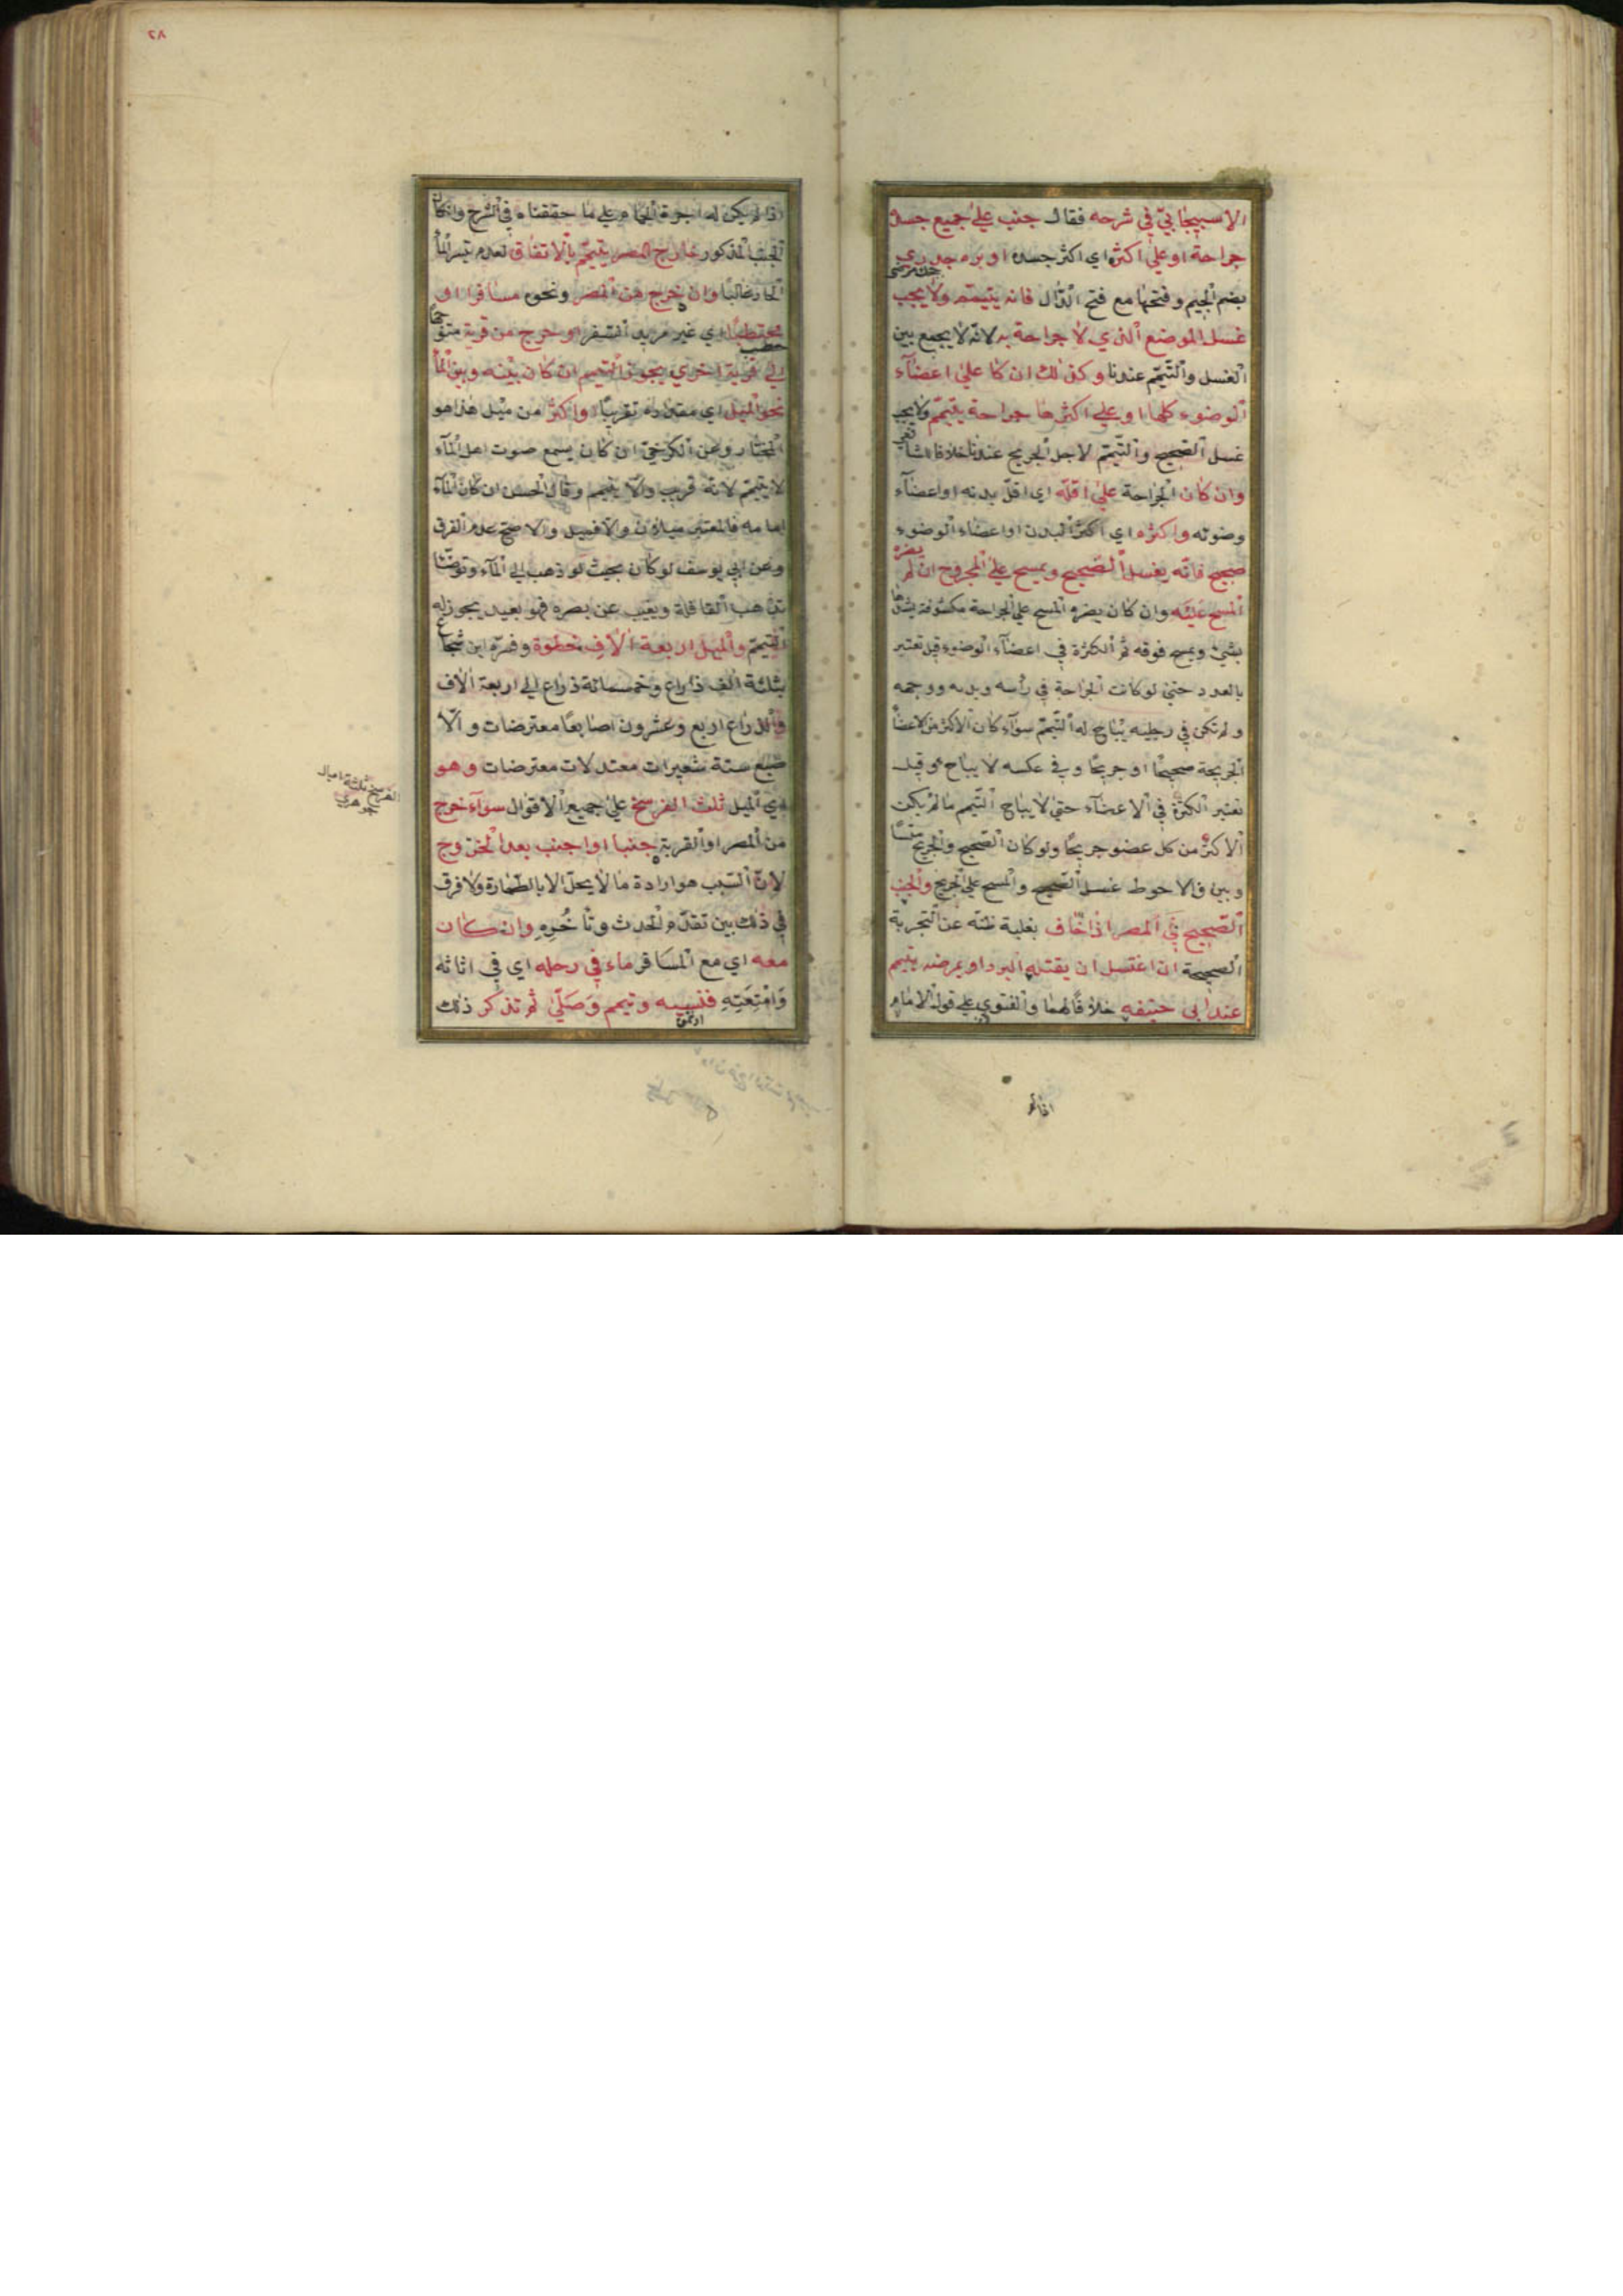 الاسبيجابيّ في شرحه فقال جنب علي جميع جسده
جراحة او علي اكثره اي اكثر جسده او به جدري
بضم الجيم وفتحها مع فتح الدّال فانه يتيمّم ولا يجب
غسل الموضع الذي لا جراحة به لانّه لا يجمع بين
الغسل والتّيمّم عندنا وكذلك ان كا علي اعضآء
الوضوء كلها او علي اكثرها جراحة يتيمّم ولا يجب
غسل الصّحيح والتّيمّم لاجل الجريح عندنا خلافا للشا
فعي
وان كان الجراحة علي اقلّه اي اقلّ بدنه او اعضآء
وضوئه واكثره اي اكثر البدن او اعضاء الوضوء
صحيح فانّه يغسل الصّحيح ويمسح علي المجروح ان لم
يضره
المسح عليه وان كان يضره المسح علي الجراحة مكشوفة يشدها
بشئ ويمسح فوقه ثم الكثرة في اعضآء الوضوء قيل تعتبر
بالعدد حتي لو كانت الجراحة في رأسه ويديه ووجهه
ولم تكن في رجليه يباح له التّيمّم سوآء كان الاكثر من الاعضا
الجريحة صحيحًا او جريحًا وفي عكسه لا يباح وقيل
تعتبر الكثرة في الاعضآء حتي لا يباح التّيمم ما لم يكن
الاكثر من كل عضو جريحًا ولو كان الصّحيح والجريح
متسا
ويين فالاحوط غسل الصّحيح والمسح علي الجريح والجنب
الصّحيح في المصر اذا خاف بغلبة ظنّه عن التجربة
الصحيحة ان اغتسل ان يقتله البرد او يمرضه يتيمم
عند ابي حنيفه خلافًا لهما والفتوي علي قول الامام
اذا لم
٢٨
اذا لم يكن له اجرة الحمّام علي ما حققناه في الشرح وان كان
الجنب المذكور خارج المصر يتيمّم بالاتفاق لعدم تيسر الما
الحار غالبًا وان خرج من المصر ونحوه مسافرا او
محتطبًا اي غير مريد السّفر او خرج من قرية متوجها
الي قرية اخري يجوز التّيمم ان كان بينه وبين الما
نحو الميل اي مقداره تقريبًا او اكثر من ميل هذا هو
المختار وعن الكرخيّ ان كان يسمع صوت اهل المآء
لا يتيمّم لانّه قريب والّا يتيمم وقال الحسن ان كان المآء
امامه فالمعتبر ميلان والّا فميل والاصح عدم الفرق
وعن ابي يوسف لو كان بحيث لو ذهب الي المآء وتوضّئا
تذهب القافلة ويغيب عن بصره فهو بعيد يجوز له
التّيمّم والميل اربعة الاف خطوة وفسّره ابن شجاع
بثلثة الف ذراع وخمسمائة ذراع الي اربعة الاف
والذراع اربع وعشرون اصابعًا معترضات والا
صبع ستة شعيرات معتدلات معترضات وهو
اي الميل ثلث الفرسخ علي جميع الاقوال سوآء خرج
من المصر او القرية جنبا او اجنب بعد الخروج
لانّ السّبب هو ارادة ما لا يحلّ الا بالطّهارة ولا فرق
في ذلك بين تقدّم الحدث وتأخُّرِهِ وان كان
معه اي مع المسافر ماء في رحله اي في اثاثه
وَامْتِعَتِهِ فنسيه وتيمم وَصَلّي ثم تذكر ذلك
الفرسخ ثلثة اميال
جوهري